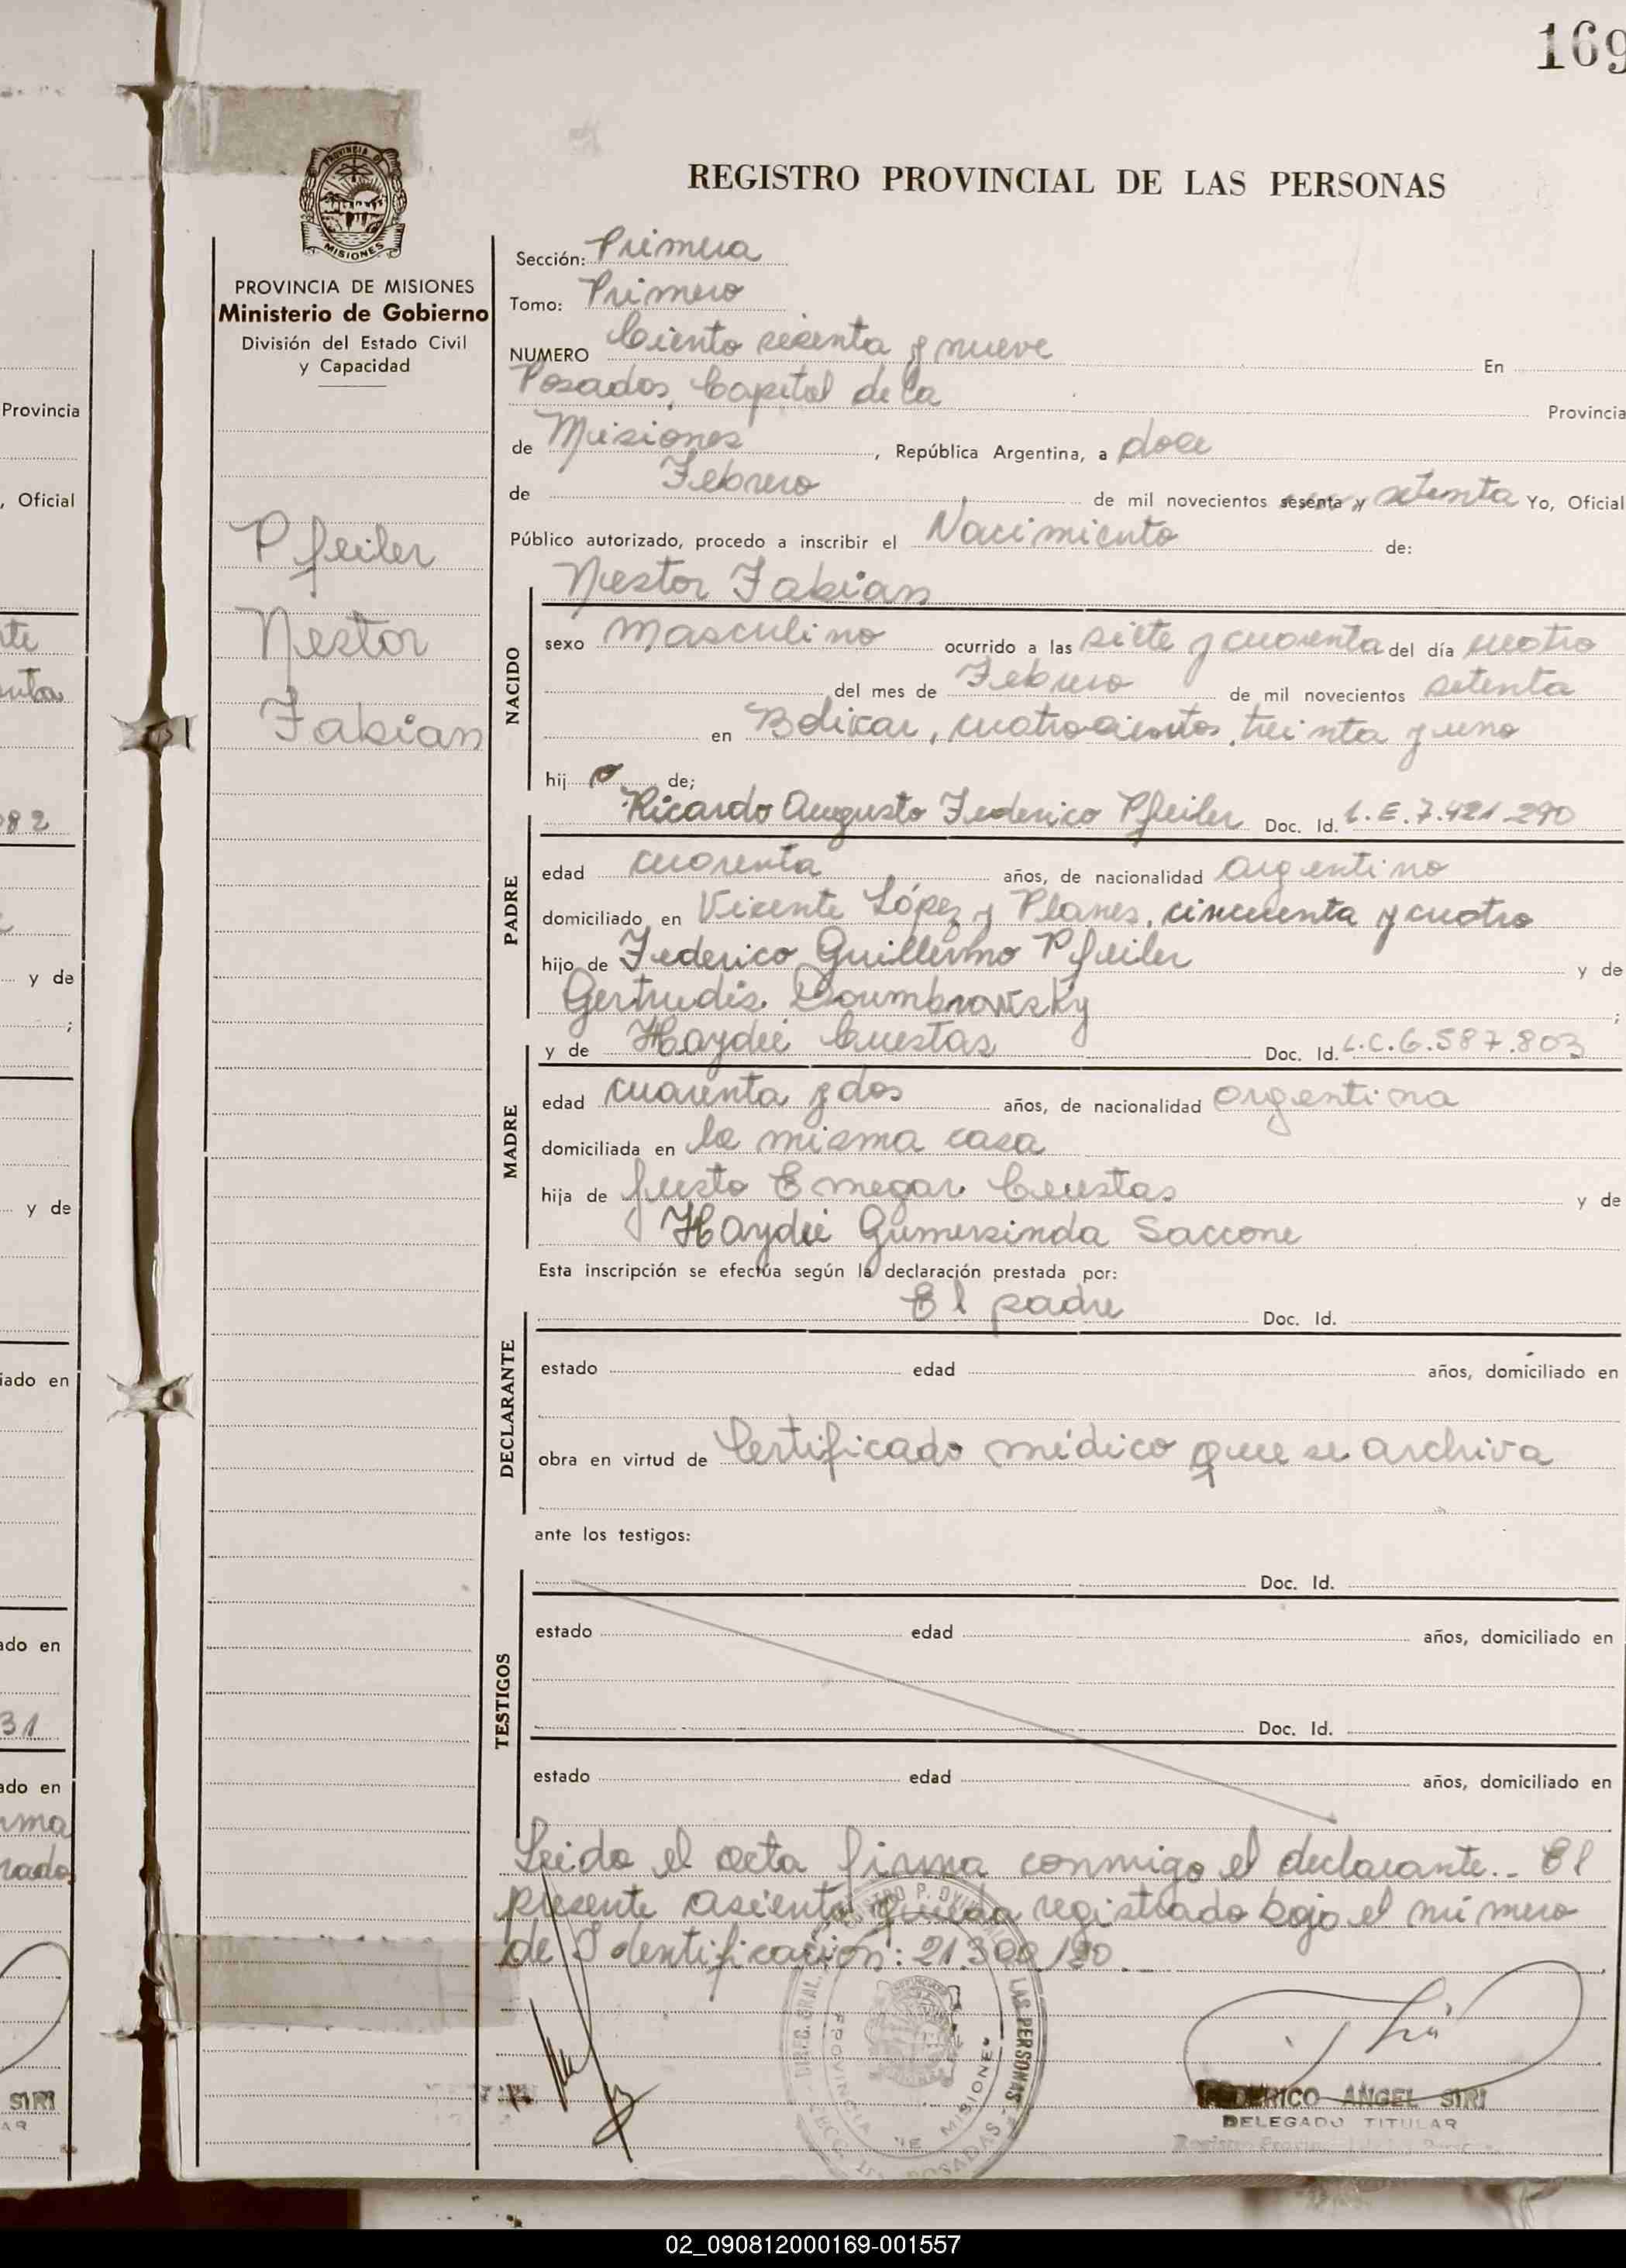 169
REGISTRO PROVINCIAL DE LAS PERSONAS
PROVINCIA DE MISIONES
Ministerio de Gobierno
División del Estado Civil
y Capacidad
Pfeiler
Nestor
Fabian
Sección: Primera
Tomo: Primero
NUMERO Ciento sesenta y nueve En
Posadas, Capital de la Provincia
de Misiones, República Argentina, a doce
de Febrero de mil novecientos sesenta y setenta Yo, Oficial
Público autorizado, procedo a inscribir el Nacimiento de:
Nestor Fabian
NACIDO
sexo masculino ocurrido a las siete y cuarenta del día cuatro
del mes de Febrero de mil novecientos setenta
en Bolivar, cuatrocientos treinta y uno
hijo de;
Ricardo Augusto Federico Pfeiler Doc. Id. L.E.7.421.290
PADRE
edad cuarenta años, de nacionalidad argentino
domiciliado en Vicente López y Planes, cincuenta y cuatro
hijo de Federico Guillermo Pfeiler y de
Gertrudis ;
y de Haydeé Cuestas Doc. Id. L.C.6.587.803
MADRE
edad cuarenta y dos años, de nacionalidad argentina
domiciliada en la misma casa
hija de Justo Cuestas y de
Haydeé Gumersinda Saccone
Esta inscripción se efectúa según la declaración prestada por:
El padre Doc. Id.
DECLARANTE
estado edad años, domiciliado en
obra en virtud de Certificado médico que se archiva
ante los testigos:
Doc. Id.
TESTIGOS
estado edad años, domiciliado en
Doc. Id.
estado edad años, domiciliado en
Leida el acta firma conmigo el declarante.- El
presente asiento queda registrado bajo el número
de Identificación: 21.300.190.
FEDERICO ANGEL SIRI
DELEGADO TITULAR
PROVINCIA DE MISIONES
LAS PERSONAS
POSADAS
Provincia
, Oficial
082
y de
;
y de
31
SIRI
02_090812000169-001557